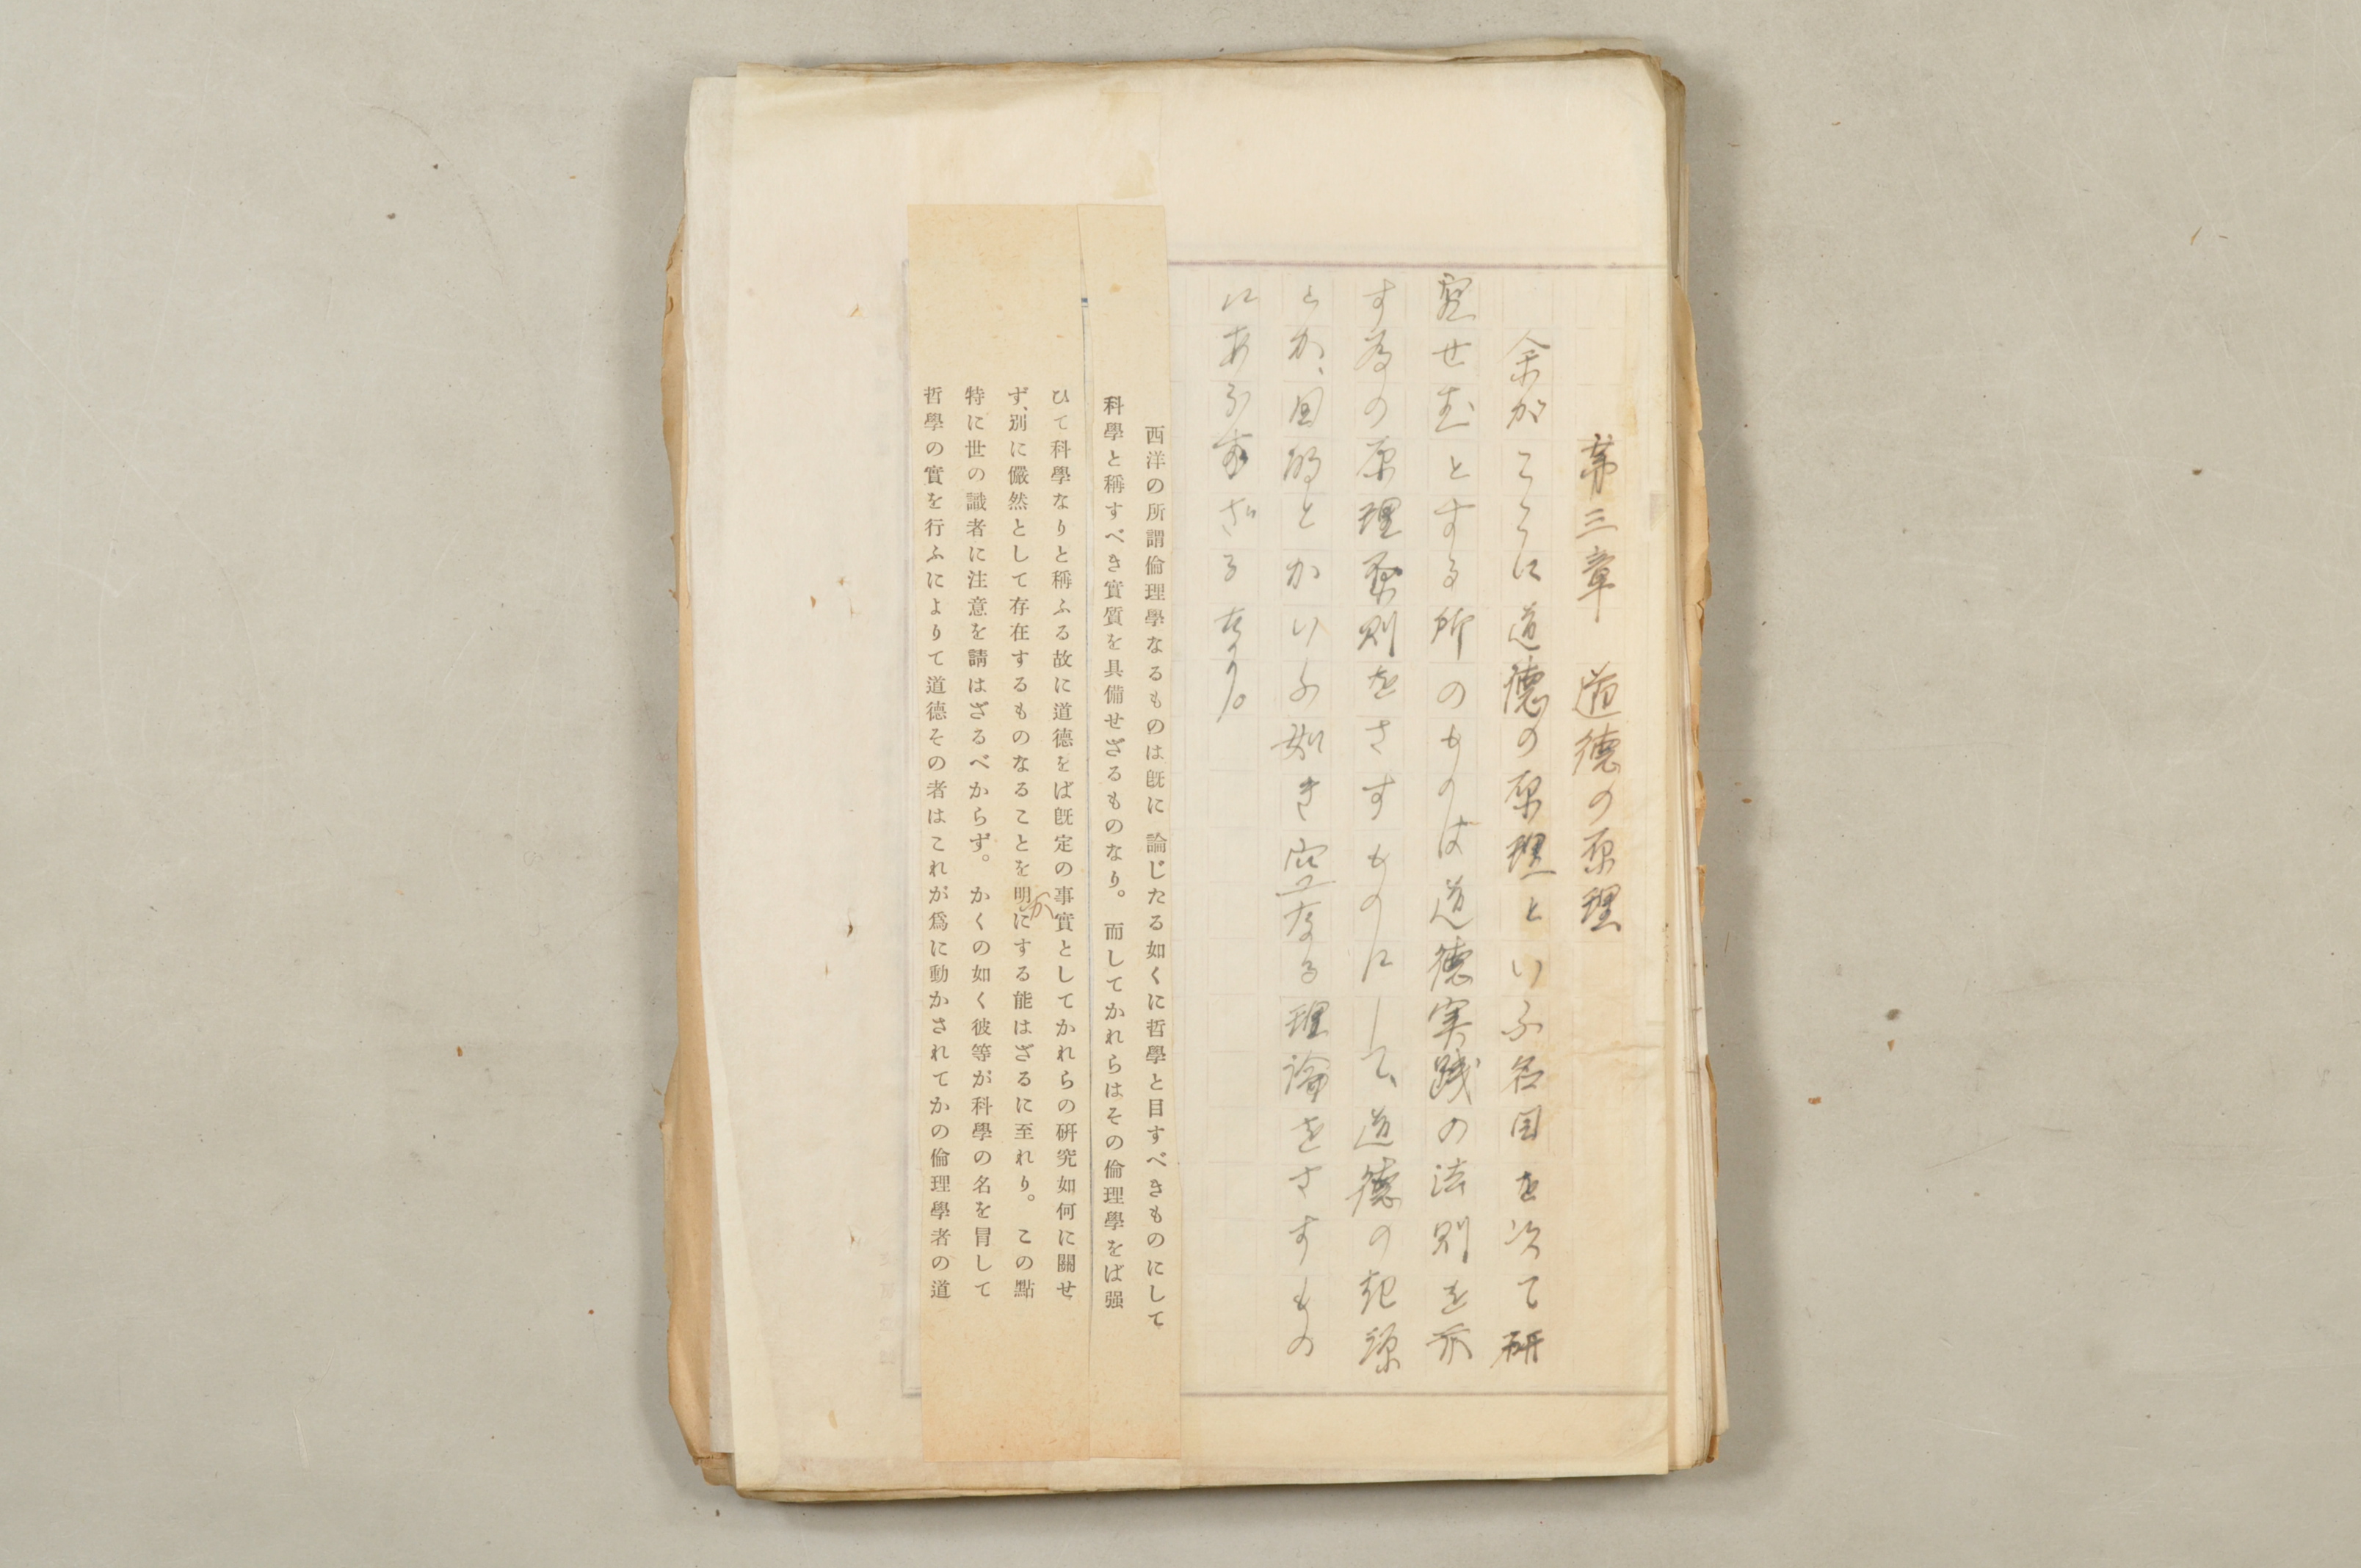 第三章　道徳の原理
余がこゝに道徳の原理といふ名目を以て研
究せむとする所のものは道徳実践の法則を示
す為の原理原則をさすものにして、道徳の起源
とか、目的とかいふ如き空なる理論をさすもの
にあらざるなり。
西洋の所謂倫理學なるものは既に論じたる如くに哲學と目すべきものにして
科學と稱すべき實質を具備せざるものなり。而してかれらはその倫理學をば强
ひて科學なりと稱ふる故に道德をば既定の事實としてかれらの硏究如何に關せ
ず、別に儼然として存在するものなることを明かにする能はざるに至れり。この點
特に世の識者に注意を請はざるべからず。かくの如く彼等が科學の名を冒して
哲學の實を行ふによりて道德その者はこれが爲に動かされてかの倫理學者の道